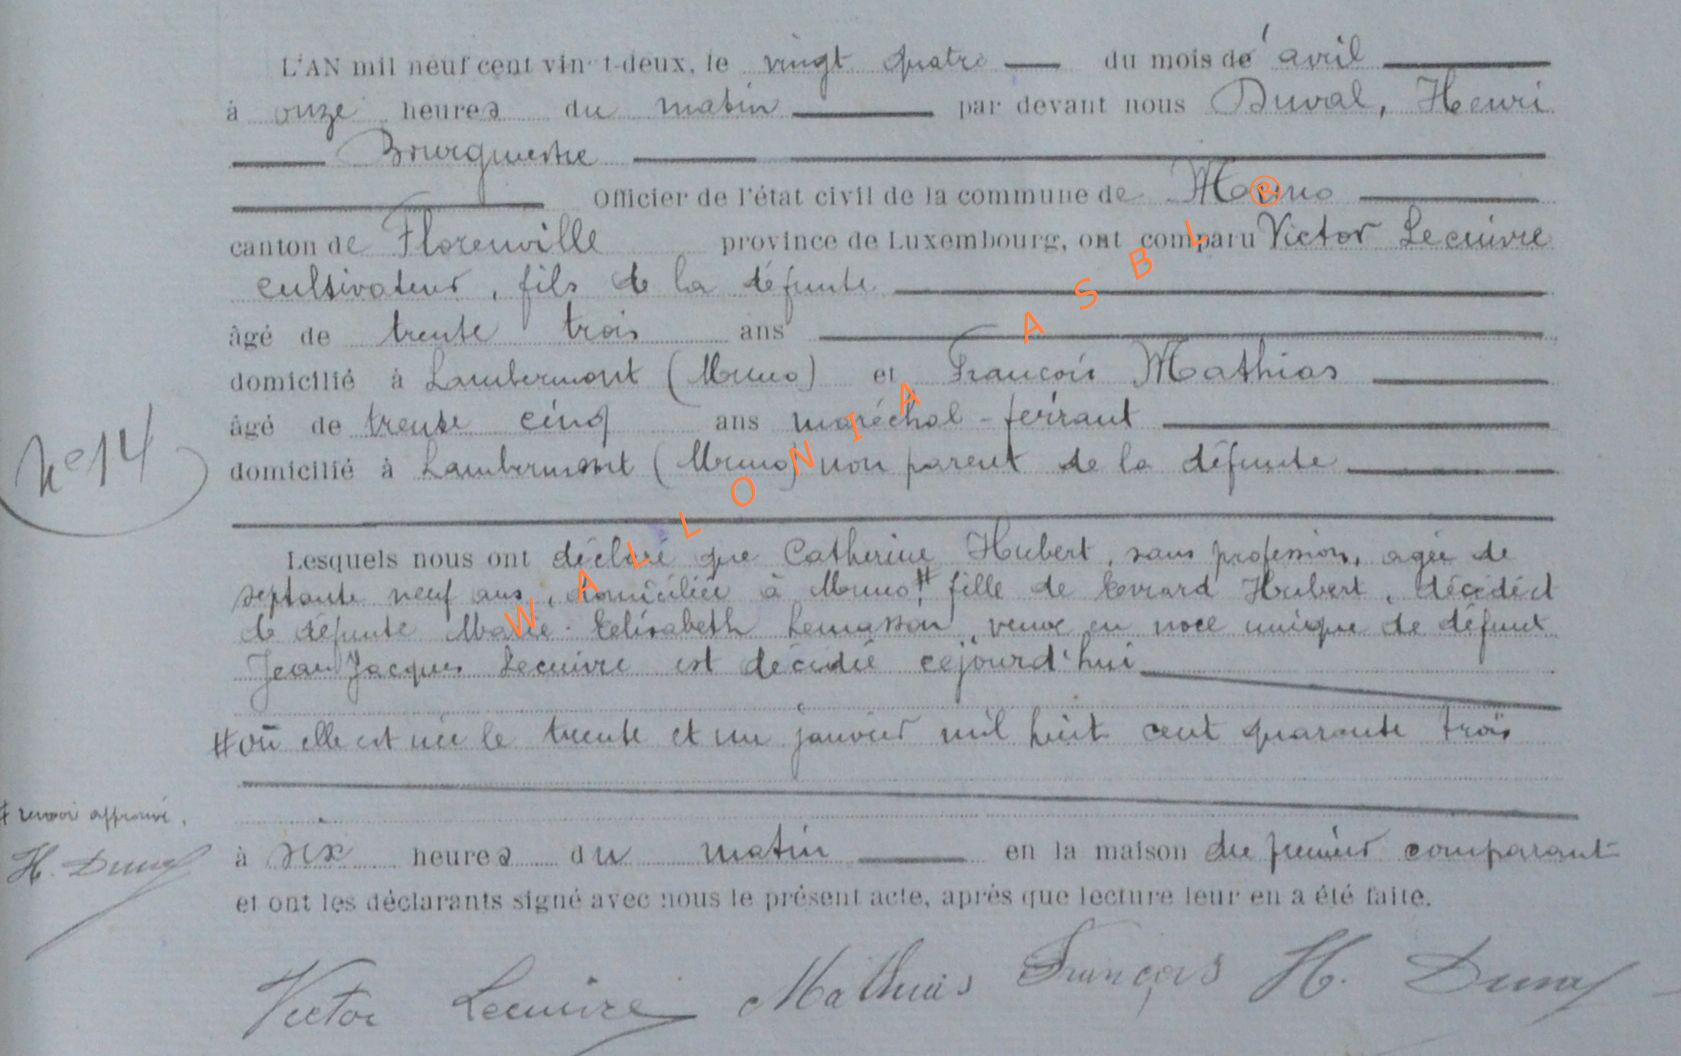 L'AN mil neuf cent vingt-deux, le vingt quatre du mois de avril
à onze heures du matin par devant nous Duval, Henri
Bourgmestre
Officier de l'état civil de la commune de Muno
canton de Florenville province de Luxembourg, ont comparu Victor Lecuivre
cultivateur, fils de la défunte
âgé de trente trois ans
domicilié à Lambermont (Muno) et François Mathias
âgé de trente cinq ans maréchal-ferrant
N° 14
domicilié à Lambermont (Muno) non parent de la défunte
Lesquels nous ont déclaré que Catherine Hubert, sans profession, agée de
septante neuf ans, domiciliée à Muno,# fille de Evrard Hubert, décédé et
de défunte Marie-Elisabeth Lemasson, veuve en noce unique de défunt
Jean Jacques Lecuivre est décédée cejourd'hui
#où elle est née le trente et un janvier mil huit cent quarante trois
# renvoi approuvé.
H. Duval
à six heures du matin en la maison du premier comparant
et ont les déclarants signé avec nous le présent acte, après que lecture leur en a été faite.
Victor Lecuivre Mathias François H. Duval
WALLONIA ASBL ®